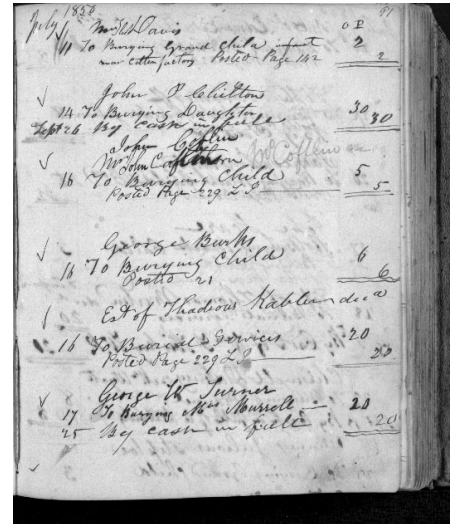 July 1856 91
Mrs Davis O E
11 To Burying Grand Child infant 2
near Cotton factory Posted Page 142 2
John P Chilton
14 To Burying Daughter 30
Sept 26 By Cash in full 30
John Coflin
Mr John Coflin McCoflin
16 To Burying Child 5
Posted Page 229 L J 5
George Burks
16 To Burying Child 6
Posted 21 6
Est of Thadious Kahlen decd
16 To Buriel Services 20
Posted Page 229 L J 20
George W Turner
17 To Burying Mrs Murrell 20
25 By Cash in full 20